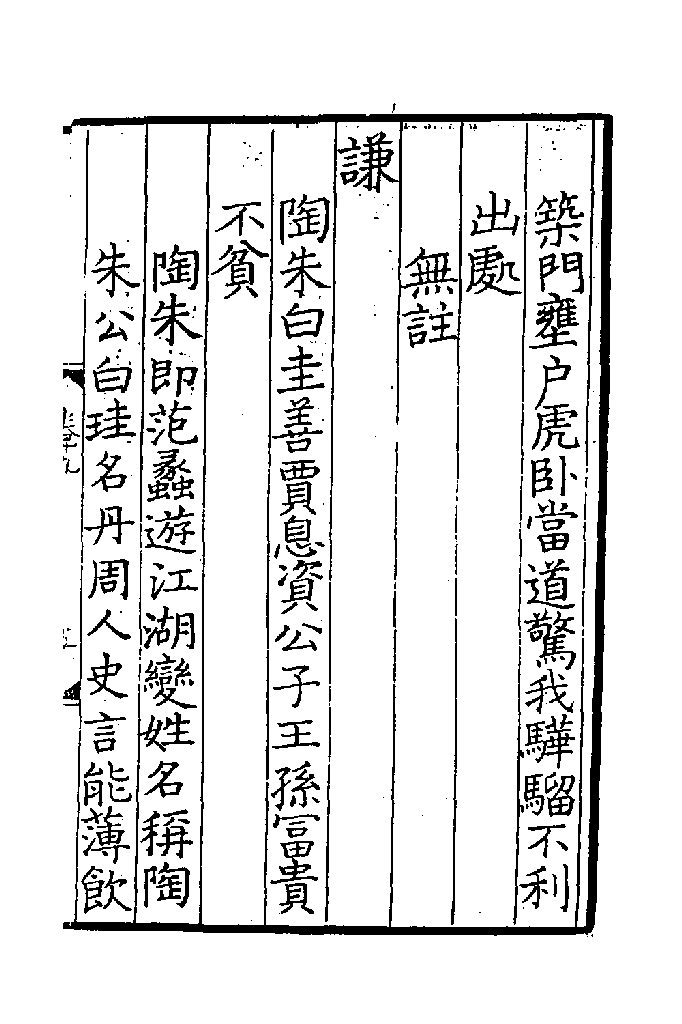 築門壅户虎卧當道驚我驊騮不利
出處
無註
謙
陶朱白圭善賈息資公子王孫富貴
不貧
陶朱即范蠡遊江湖變姓名稱陶
朱公白珪名丹周人史言能薄飲